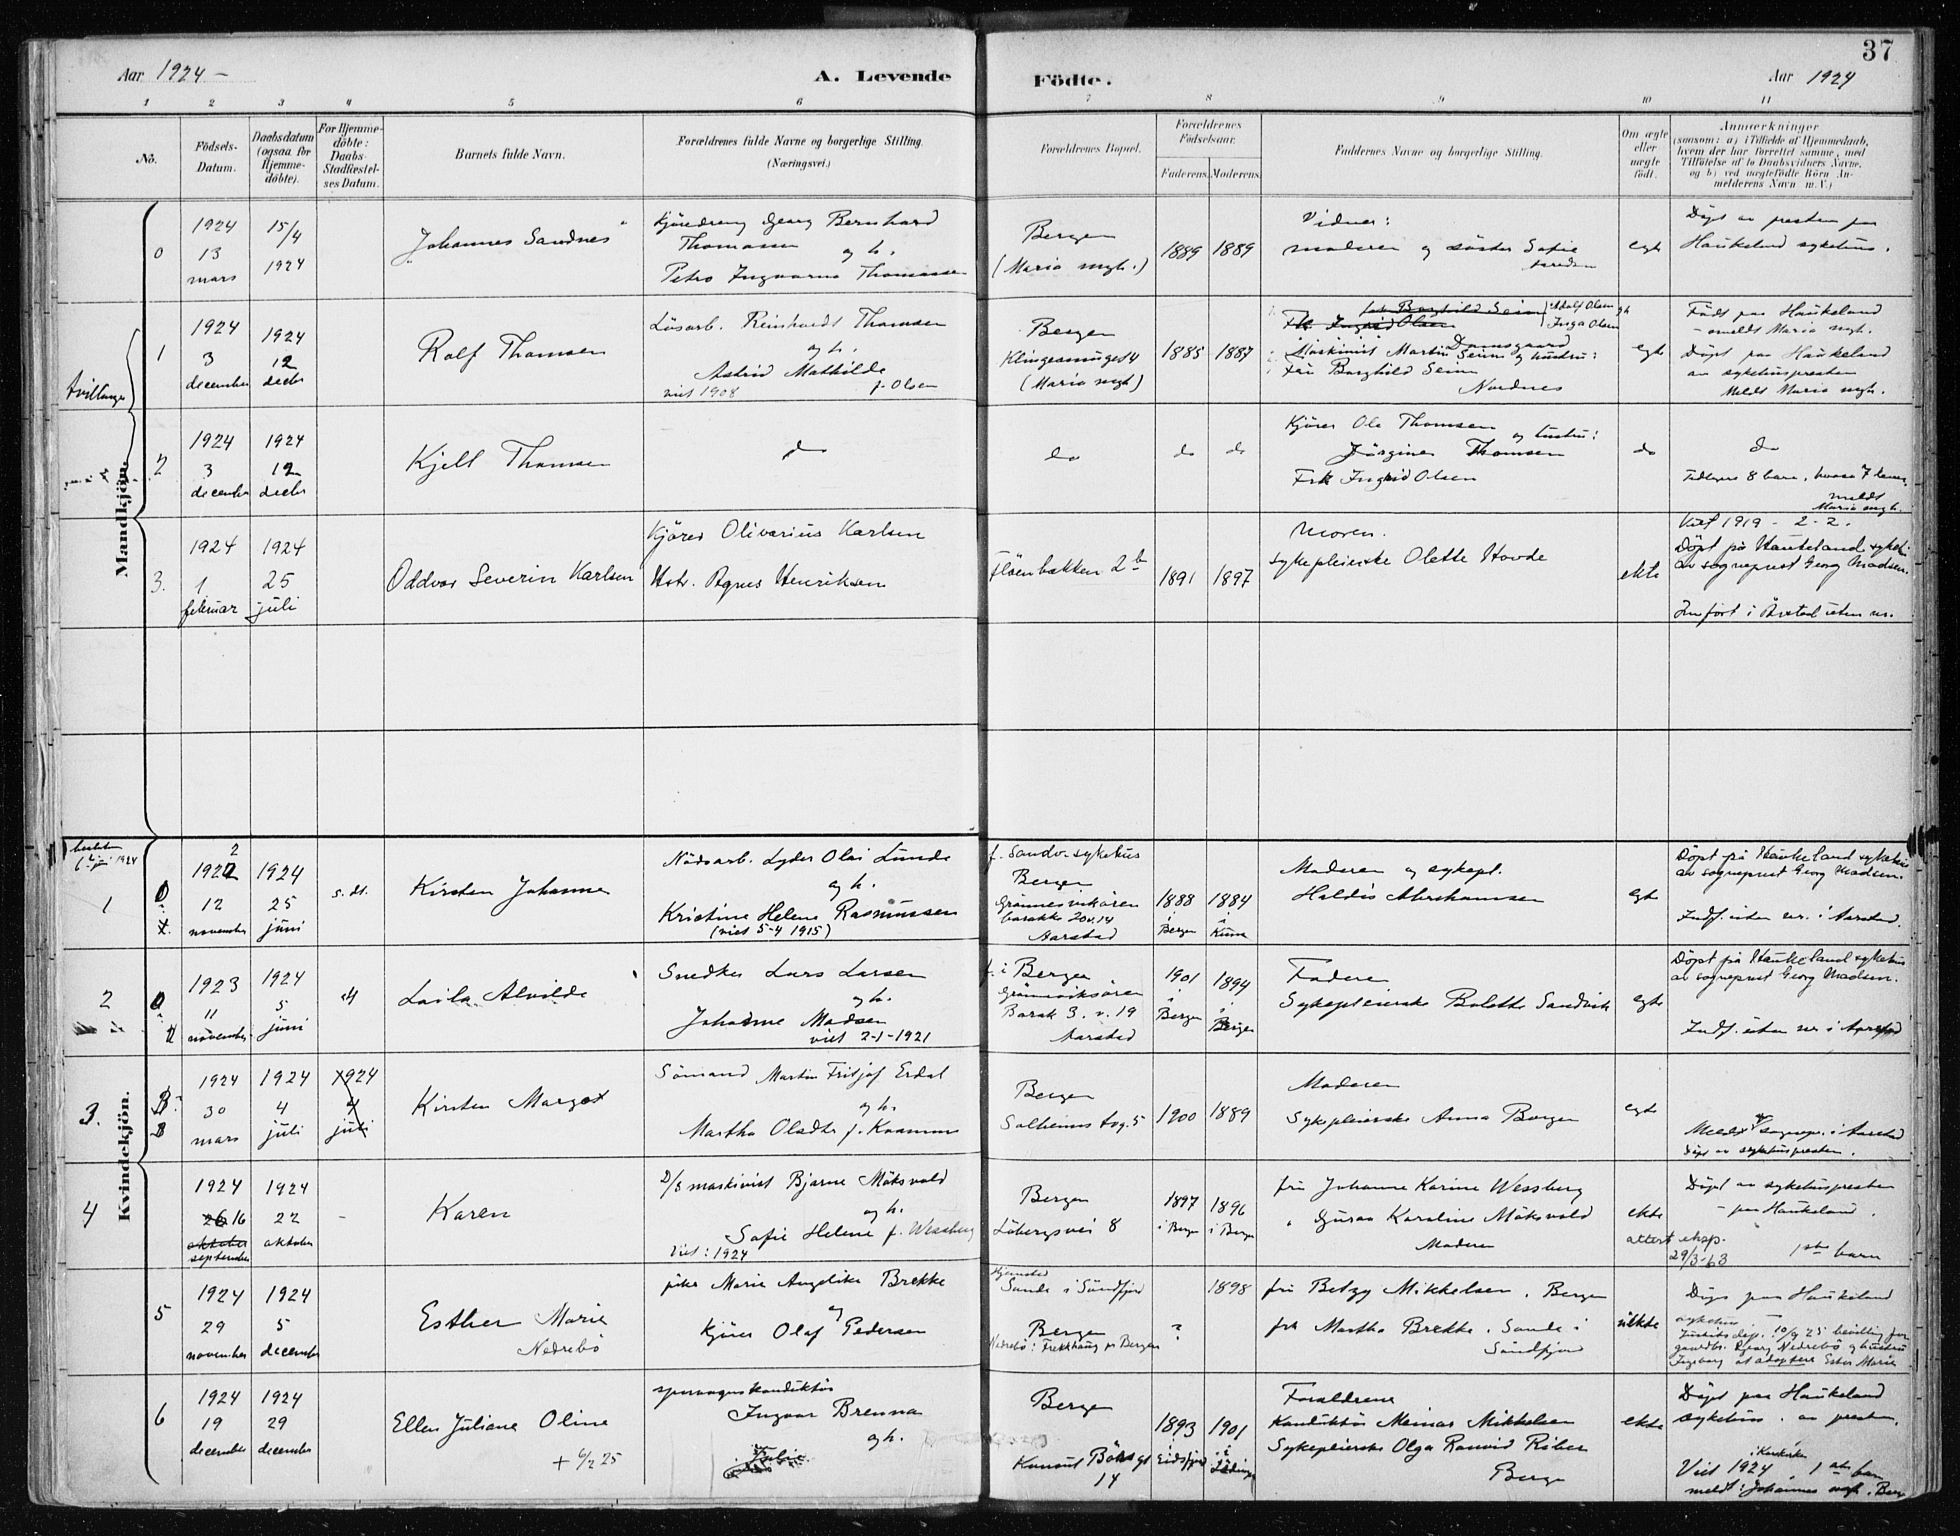 37
Aar 1924 –
A. Levende
Födte.
Aar 1924
1 2 3 4 5 6 7 8 9 10 11
No.
Födsels-
Datum.
Daabsdatum
(ogsaa for
Hjemme-
döbte).
For Hjemme-
döbte:
Daabs-
Stadfæstel-
ses Datum.
Barnets fulde Navn.
Forældrenes fulde Navne og borgerlige Stilling.
(Næringsvei.)
Forældrenes Bopæl.
Forældrenes
Födselsaar.
Faderens.
Moderens.
Faddernes Navne og borgerlige Stilling.
Om ægte
eller
uægte
födt.
Anmærkninger
(saasom: a) i Tilfælde af Hjemmedaab,
hvem der har forrettet samme, med
Tilföielse af to Daabsvidners Navne,
og b) ved uægtefödte Börn An-
melderens Navn m. V.)
Mandkjön.
0
1924
13
mars
15/4
1924
Johannes Sandnes
Kjöredreng Georg Bernhard
Thomassen
og h.
Petra Ingvarna Thomassen
Bergen
(Maria mgh.)
1889
1889
Vidner:
moderen og söster Sofie
egte
Döpt av presten paa
Haukeland sykehus.
tvillinger
1
1924
3
december
1924
12
decbr
Rolf Thomsen
Lösarb. Reinhardt Thomsen
og h.
Astrid Mathilde
viet 1908 f. Olsen
Bergen
Klingesmuget 4
(Maria mgh)
1885
1887
Frk Borghild Seim
Frk Ingrid Olsen
Adolf Olsen
Inga Olsen
Damsgaard
Maskinist Martin Seim og hustru:
Fru Borghild Seim
Nordnes
egte
Födt paa Haukeland
– meldt Maria mgh.
Döpt paa Haukeland
av sykehuspresten
Meldt Maria mgh.
2
1924
3
december
1924
12
decbr
Kjell Thomsen
do
do
do
do
Kjörer Ole Thomsen
og hustru:
Jörgine Thomsen
Frk Ingrid Olsen
do
do
Tidligere 8 barn, hvorav 7 lever.
meldt
Maria mgh.
3.
1924
1.
februar
1924
25
juli
Oddvar Severin Karlsen
Kjörer Olivarius Karlsen
Hstr. Agnes Henriksen
Flöenbakken 2b
1891
1897
Moren.
Sykepleierske Olette Hovde
ekte
Viet 1919 – 2-2.
Döpt på Haukeland sykeh.
av sogneprest Georg Madsen.
Innfört i Årstad uten nr.
Kvindekjön.
1
1922
12
november
1924
25
juni
s. dt.
Kirsten Johanne
Nödsarb. Lyder Olai Lunde
og h.
Kristine Helene Rasmussen
(viet 5-4 1915)
f. Sandv. sykehus
Bergen
Grönnesvikören
barakke 20 v. 14
Aarstad
1888
i
Bergen
1884
i
Moderen og sykepl.
Haldis Abrahamsen
egte
Döpt på Haukeland sykehus
av sogneprest Georg Madsen.
Indf. uten nr. i Aarstad.
2
1923
11
november
1924
5
juni
Laila Alvilde
Snedker Lars Larsen
og h.
Johanne Madsen
viet 2-1-1921
f. i Bergen
Grönneviksören
Barak 3. v. 19
Aarstad
1901
i
Bergen
1894
i
Bergen
Faderen
Sykepleierske Bolette Sandvik
egte
Döpt på Haukeland sykehus
av sogneprest Georg Madsen.
Indf. uten nr i Aarstad
3.
1924
30
mars
1924
4
juli
1924
4
juli
Kirsten Margot
Sömand Martin Fritjof Erdal
og h.
Martha Oladte f. Kvamme
Bergen
Solheims tvg. 5
1900
1889
Moderen
Sykepleierske Anna Borgen
egte
Meldt sognepr. i Aarstad
Döpt av sykehuspresten.
4
1924
26 16
oktober
september
1924
22
oktober
–
Karen
D/S maskinist Bjarne Möksvold
og h.
Sofie Helene f. Wessberg
Viet: 1924
Bergen
Löbergsvei 8
1897
i Bergen
1896
i Bergen
Fru Johanne Karine Wessberg
" Guroa Karoline Möksvold
Moderen
ekte
attert eksp.
29/3-63
Döpt av sykehuspresten
– paa Haukeland.
1ste barn
5
1924
29
november
1924
5
december
Esther Marie
Nedrebö
pike Marie Angelika Brekke
og
Kjörer Olaf Pedersen
Hjemsted
Sande i Söndfjord
Bergen
Nedrebö: Frekhaug pr Bergen
?
1898
fru Betzy Mikkelsen, Bergen
frk Martha Brekke, Sande i
Söndfjord
uekte
Döpt paa Haukeland
sykehus.
Justitsdep. 10/9 25 bevilling for
gaardbr. Georg Nedrebö og hustru
Ingeborg at adoptere Ester Marie
6
1924
19
december
1924
29
december
Ellen Juliane Oline
+ 6/2 25
sporvognskonduktör
Ingvar Brenna
og h.
Bergen
Konsul Börs gt
14
1893
i
Eidsfjord
1901
i
Forældrene
Konduktör Meinar Mikkelsen
Sykepleierske Olga Ranvid Riber
Bergen
ekte
Döpt paa Haukeland
sykehus. av presten.
i Korskirken
Viet 1924, 1ste barn
meldt: Johannes mgh. Berg